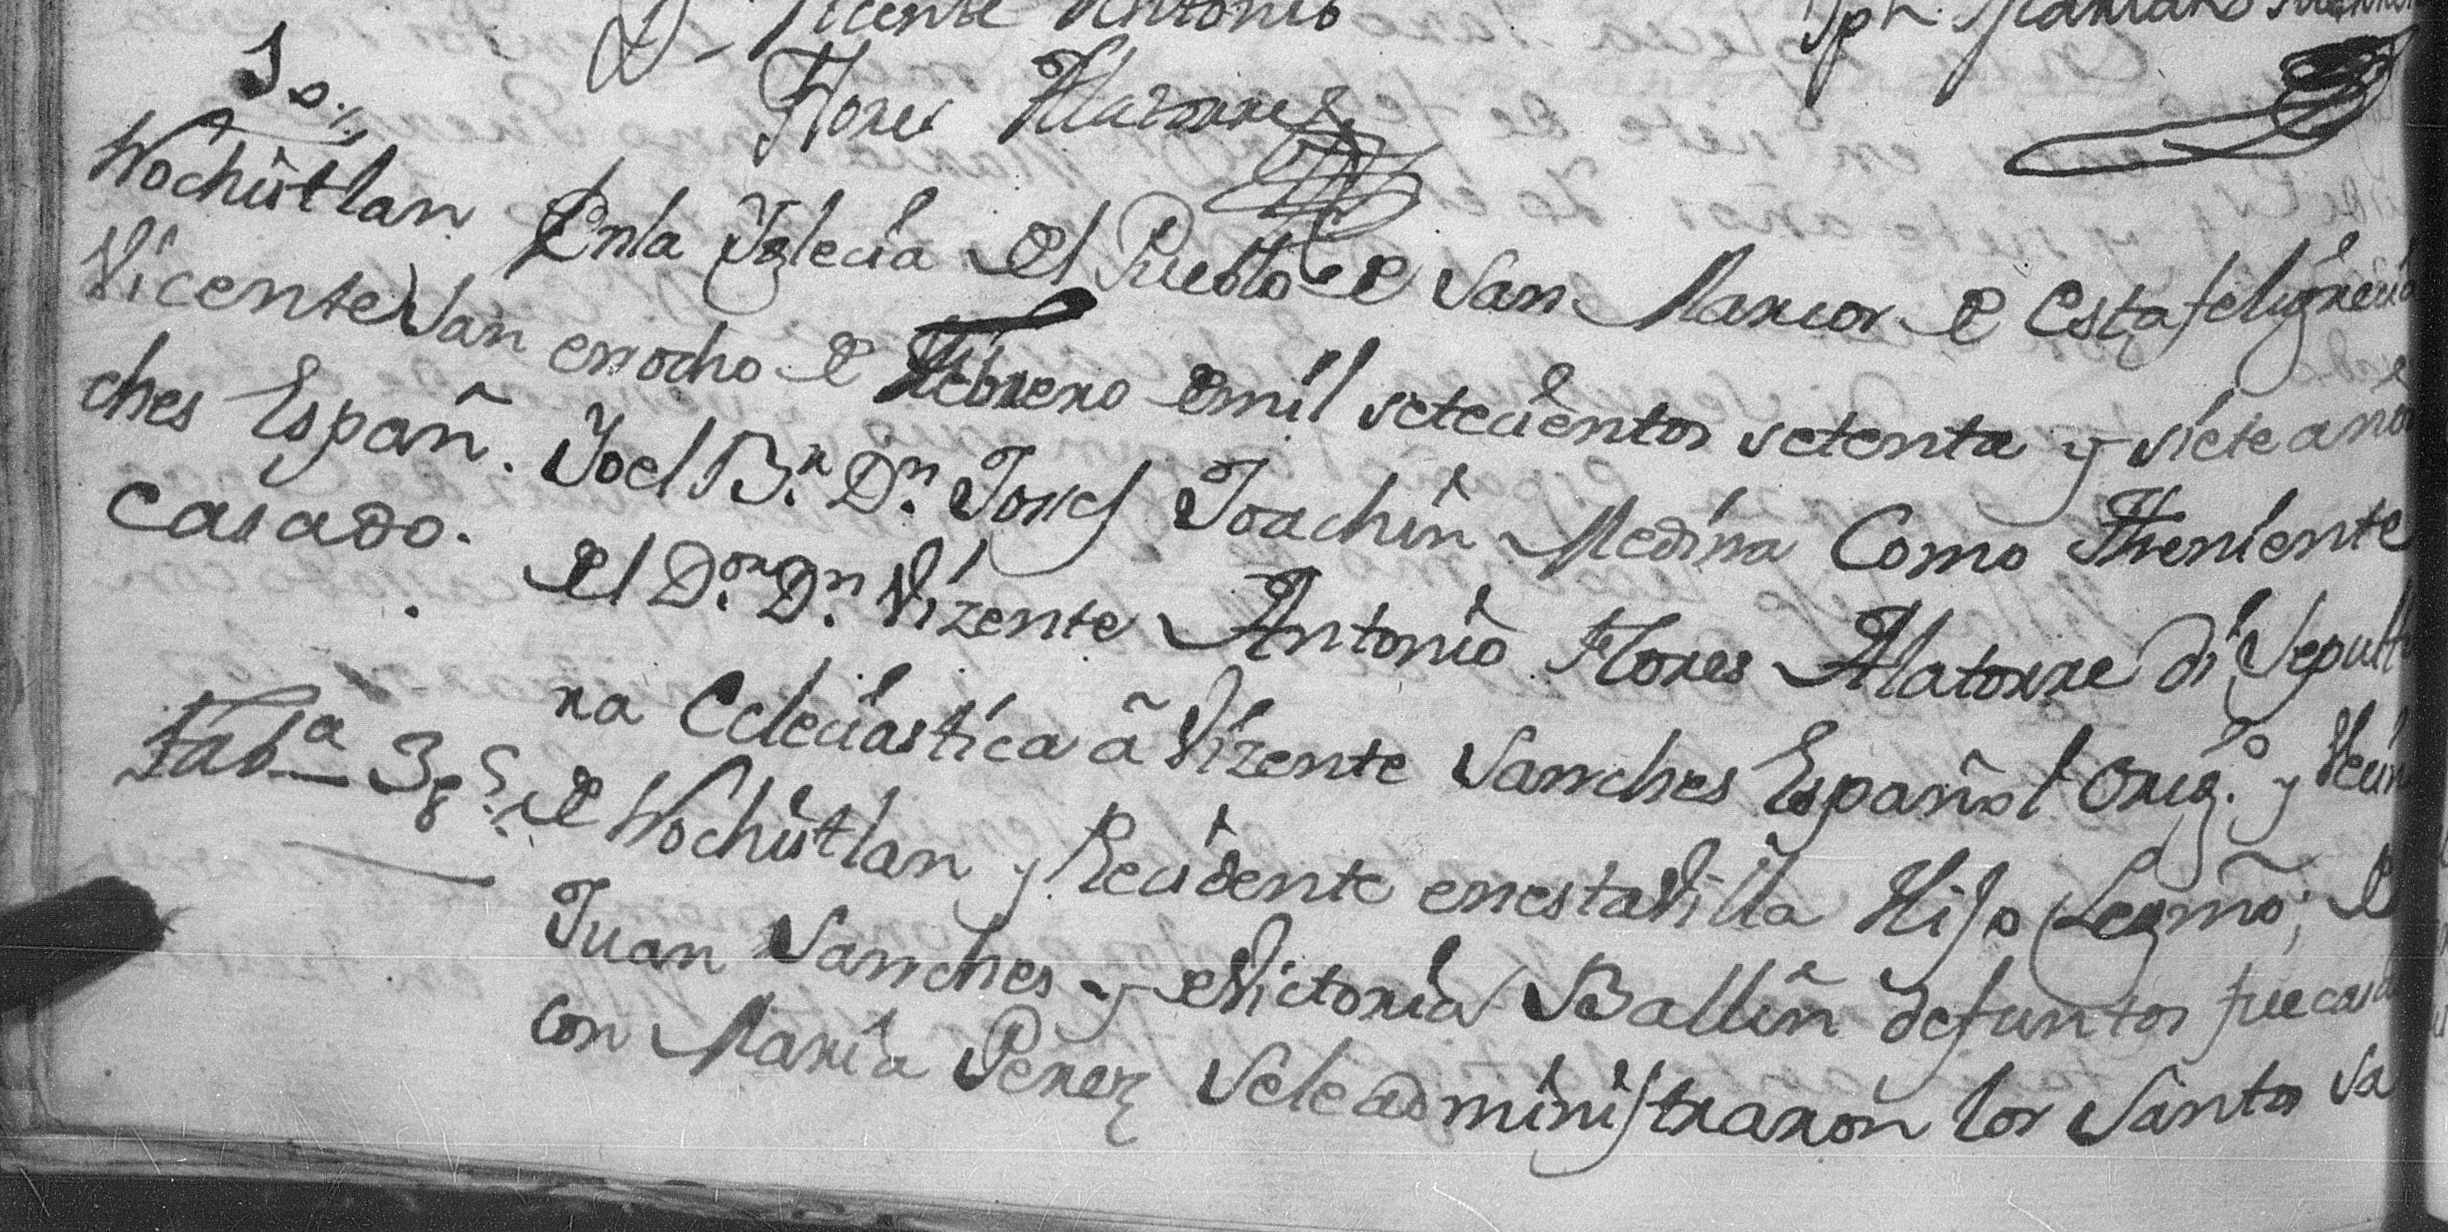 Dr. Vicente Antonio
Flores Alatorre
Nochistlan
Vicente San
ches Españ.
Casado.
Fab.ª 3 ps.
En la Yglecia del Pueblo de San Marcos de Esta feligrecia
en ocho de Febrero de mil setecientos setenta y siete años
Yo el B.r D.n Josef Joachin Medina Como Theniente
del D.or D.n Vizente Antonio Flores Alatorre di Sepultu
ra Ecleciastica â Vizente Sanches Español Orig.o y Vecin
de Nochistlan y Recidente en esta Villa Hijo Legmõ; de
Juan Sanches y de Victoria Ballin defuntos fue casad
Con Maria Perez Se le administraron los Santos Sa